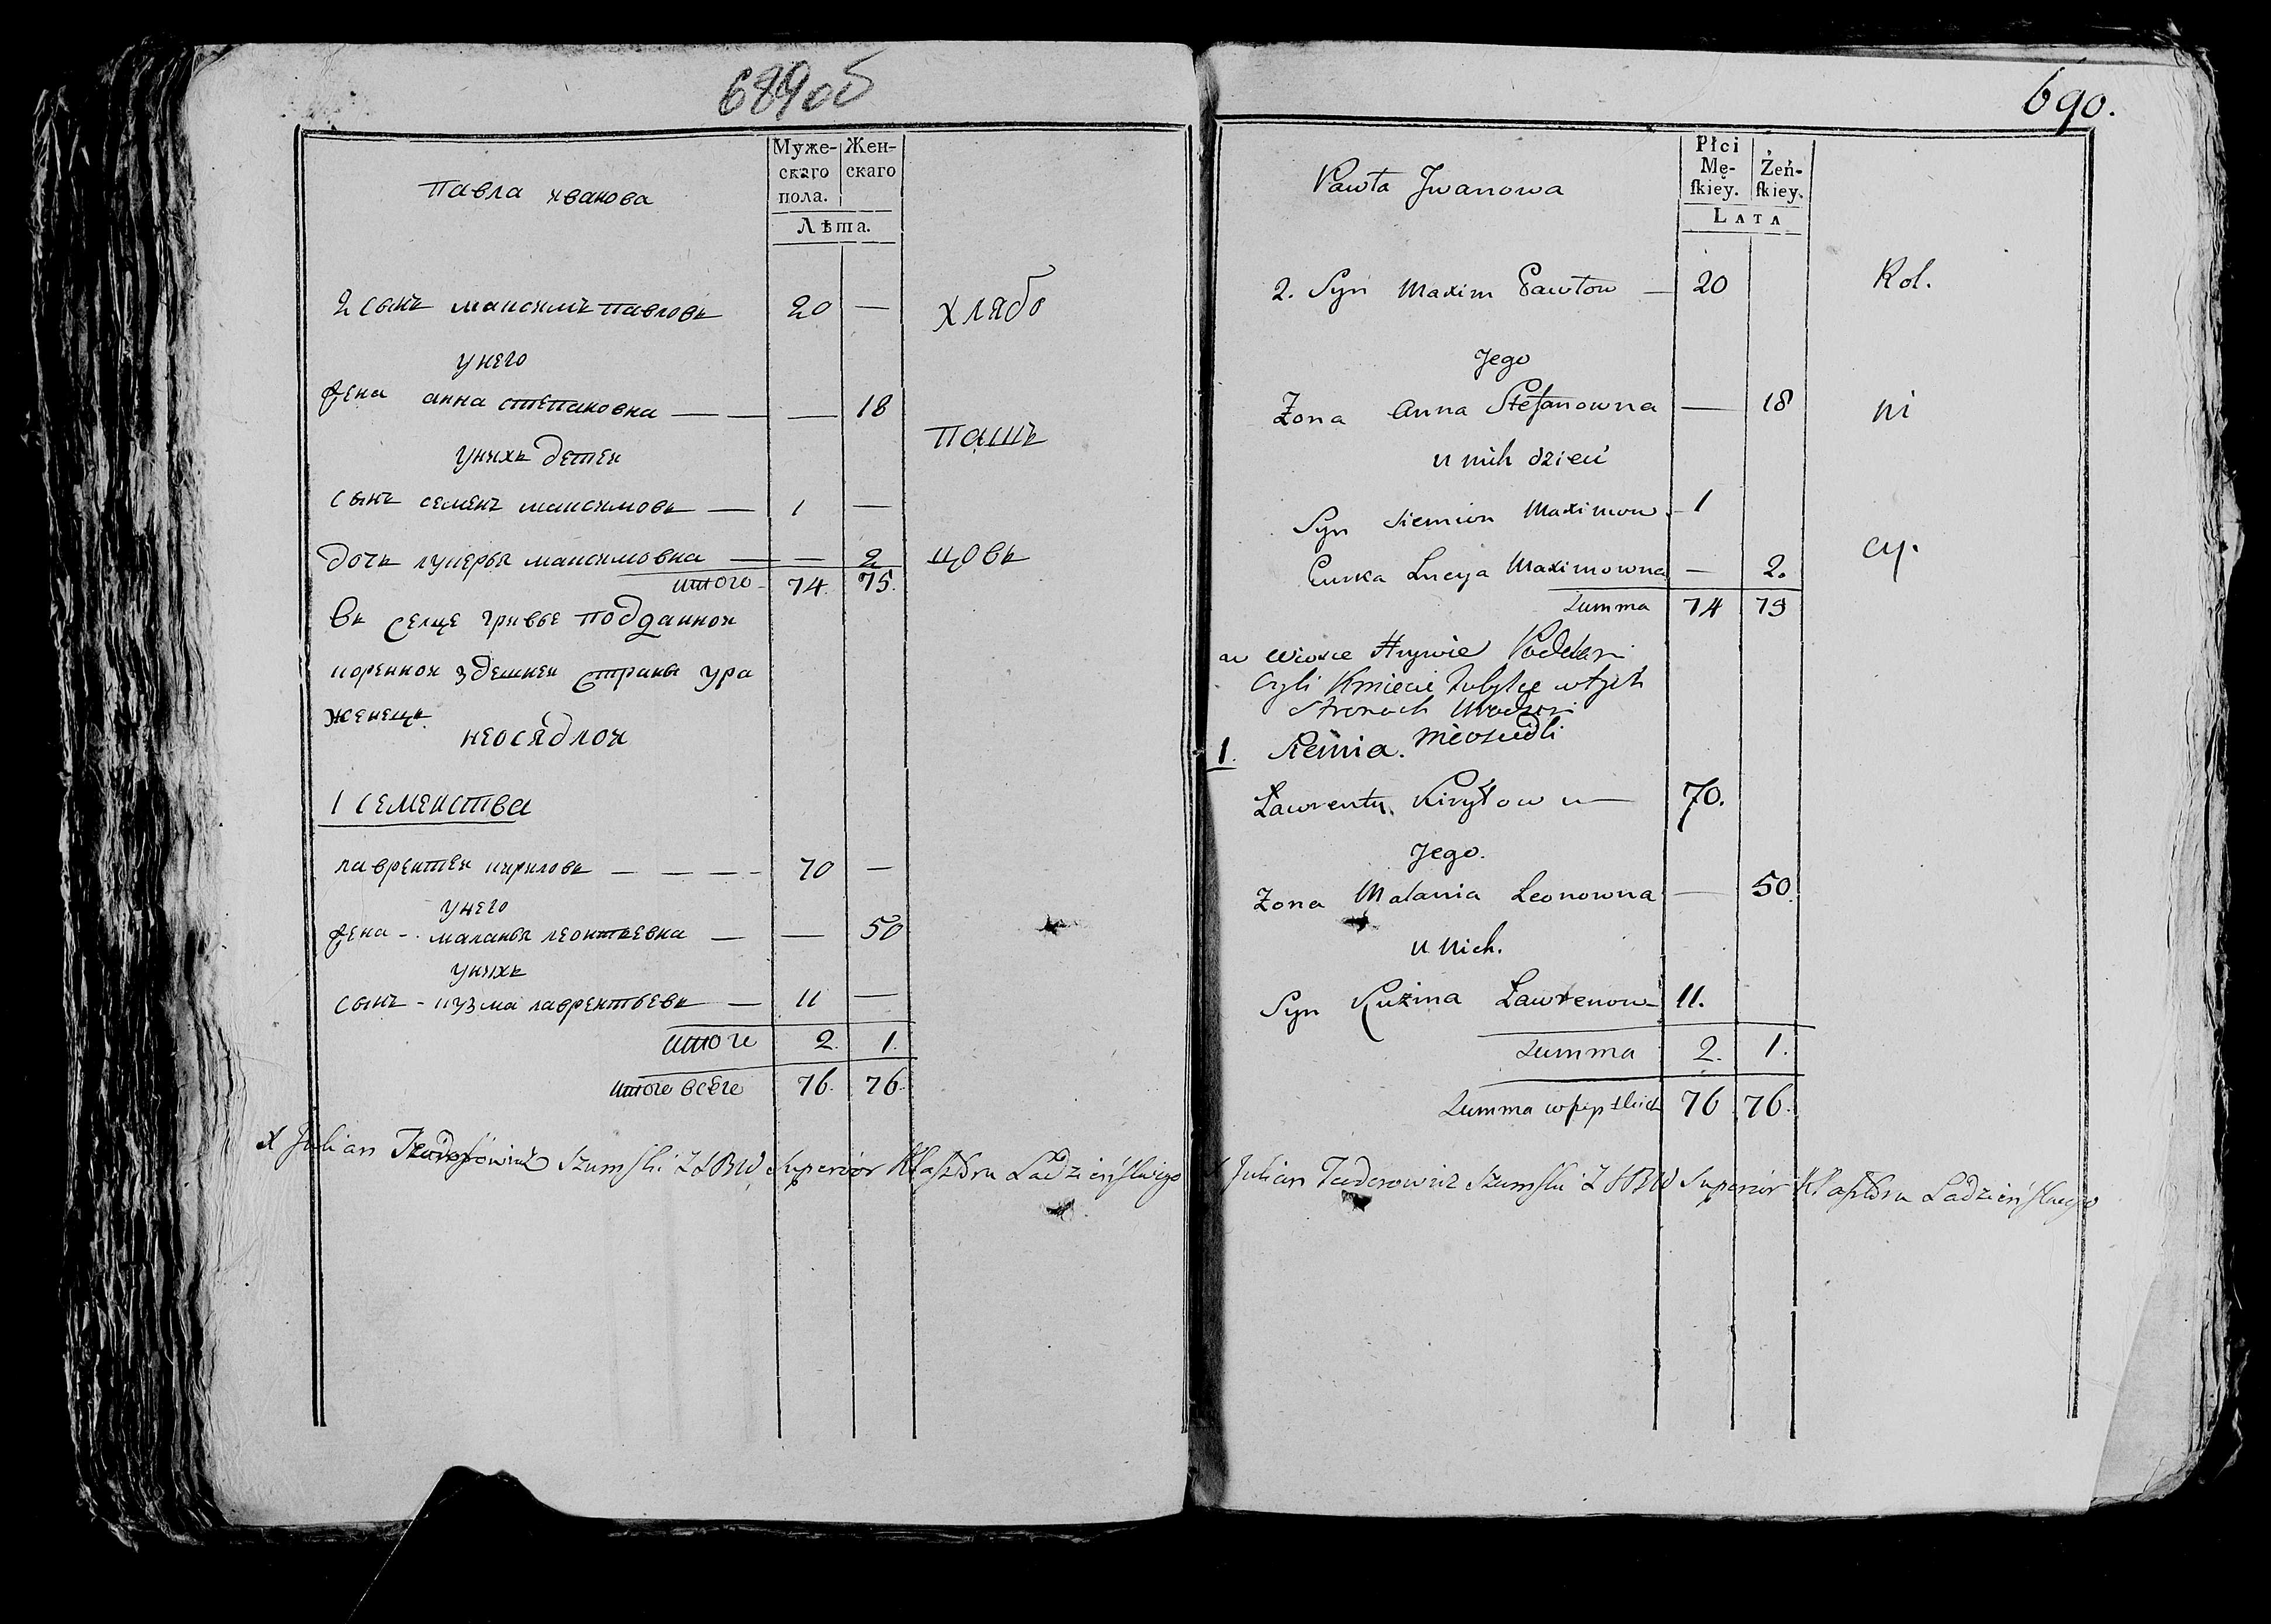 689об
Муже-
скаго
пола.
Жен-
скаго
Лѣта.
Павла хванова
2 сынъ мансхмъ павловъ 20 — хлябо
унего
жена анна степановна — — — 18
пашъ
унххъ детен
сынъ семенъ мансхмовъ — 1 —
дочъ луцеръя мансхмовна — — 2 цовъ
итого 74. 75.
въ селце грнвье подданнон
нореннон здешнен страны ура
женецъ
неосядлон
1 семенства
лаврентен кирхловъ — — — — 70 —
унего
жена - маланья леонтьевна — — 50
унххъ
сынъ - нузма лаврентьевъ — 11 —
итого 2. 1.
итого всего 76. 76.
X Julian Szumski Z S B W Superior Klasztoru Ladzieńskiego
690.
Płci
Mę-
skiey.
Żeń-
skiey.
LATA
Pawła Jwanowa
2. Syn Maxim Pawłow — 20 Rol.
Jego
Żona Anna Stefanowna — 18 ni
u nich dzieci
Syn Siemion Maximow — 1
Curka Lucya Maximowna — 2. cy.
Summa 74 75
w wiosce Hrywie Poddani
Czyli Kmiecie w tych
Stronach Urodzeni
nieosiedli
1. Siemia.
Lawrenty Kiryłow — 70.
Jego.
Żona Malania Leonowna — 50.
u nich.
Syn Kuzma Lawrenow 11.
Summa 2. 1.
Summa wszystkich 76 76.
X Julian Teodorowicz Szumski Z S B W Superior Klasztoru Ladzieńskiego